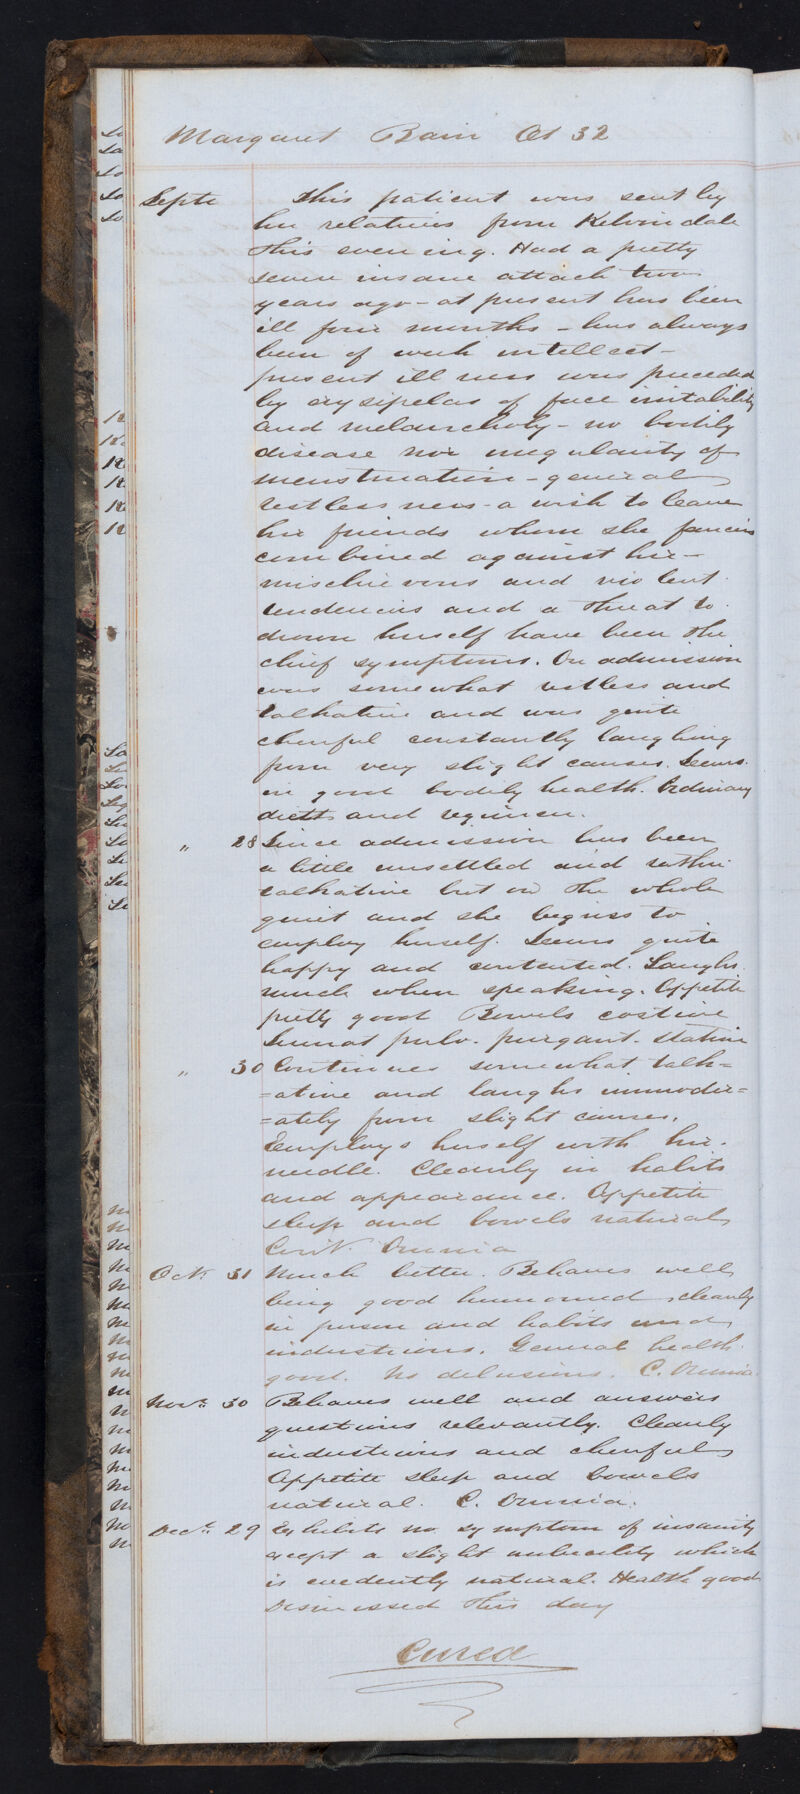 Margaret Bain Æt 32
Septr This patient was sent by
her relatives from Kelvindale
this evening. Had a pretty
severe insane attack two
years ago – at present has been
ill four months – has always
been of weak intellect –
present illness was preceded
by erysipelas of face irritability
and melancholy – no bodily
disease nor irregularity of
menstruation – general
restlessness – a wish to leave
her friends whom she fancies
combined against her –
mischievous and violent
tendencies and a threat to
drown herself have been the
chief symptoms. On admission
was somewhat restless and
talkative and was quite
cheerful constantly laughing
from very slight causes. Seems
in good bodily health. Ordinary
diett and regimen.
" 28 Since admission has been
a little unsettled and rather
talkative but on the whole
quiet and she begins to
employ herself. Seems quite
happy and contented. Laughs
much when speaking. Appetite
pretty good Bowels costive
Sumat pulv. purgant. statim
" 30 Continues somewhat talk=
=ative and laughs immoder=
=ately from slight causes.
Employs herself with her
needle. Cleanly in habits
and appearance. Appetite
sleep and bowels natural
Cont. Omnia
Oct. 31 Much better. Behaves well
being good humoured, cleanly
in person and habits and
industrious. General health
good. No delusions. C. Omnia.
Novr. 30 Behaves well and answers
questions relevantly. Cleanly
industrious and cheerful
Appetite sleep and bowels
natural. C. Omnia.
Decr. 29 Exhibits no symptom of insanity
except a slight imbecility which
is evedently natural. Health good
Dismissed this day
Cured